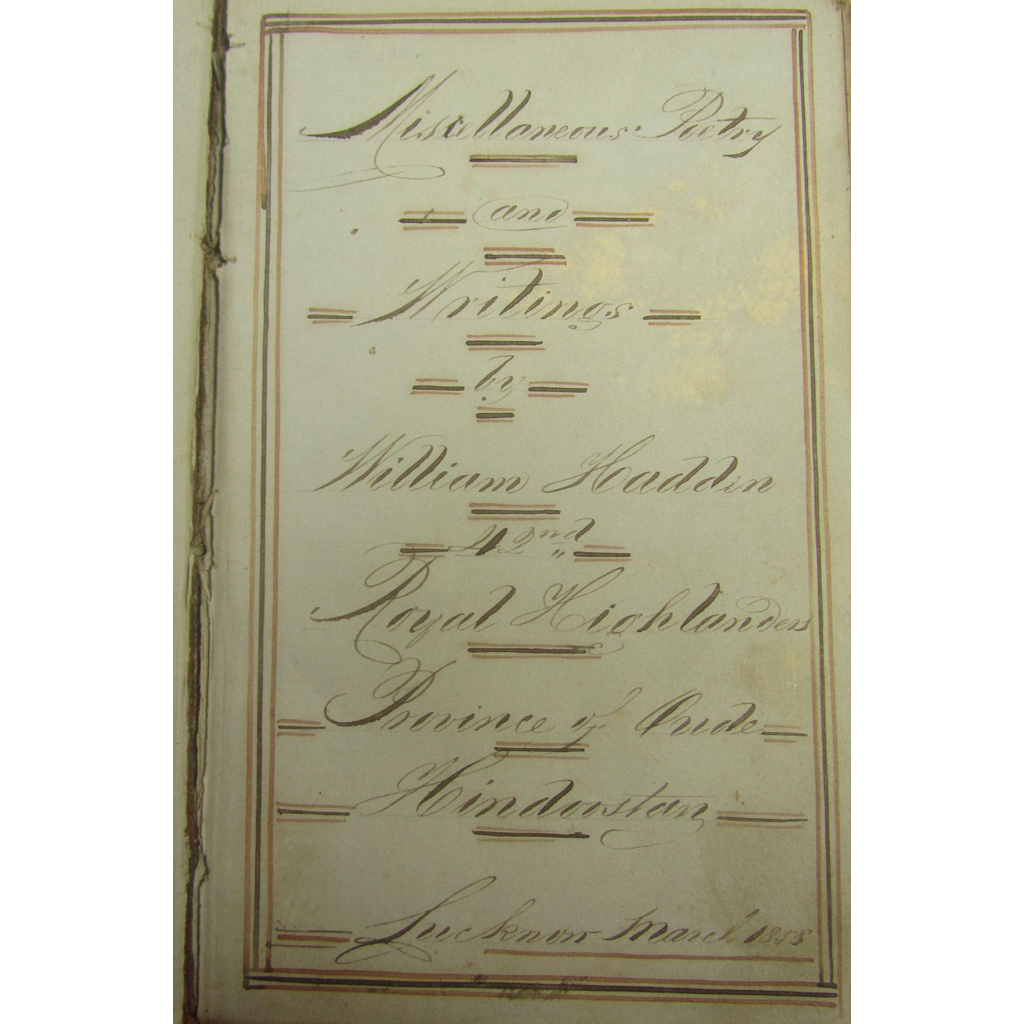 Miscellaneous Poetry
and
Writings
by
William Haddin
42nd
Royal Highlanders
Province of Oude
Hindoostan
Lucknow March 1858